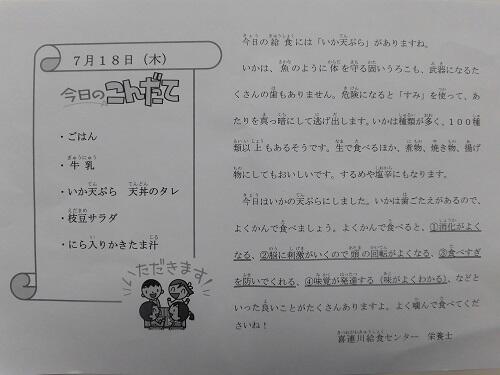 7月18日（木）
今日のこんだて
・ごはん
・牛乳
・いか天ぷら　天丼のタレ
・枝豆サラダ
・にら入りかきたま汁
いただきます
今日の給食には「いか天ぷら」がありますね。
いかは、魚のように体を守る固いうろこも、武器になるた
くさんの歯もありません。危険になると「すみ」を使って、あ
たりを真っ暗にして逃げ出します。いかは種類が多く、１００種
類以上もあるそうです。生で食べるほか、煮物、焼き物、揚げ
物にしてもおいしいです。するめや塩辛にもなります。
今日はいかの天ぷらにしました。いかは歯ごたえがあるので、
よくかんで食べましょう。よくかんで食べると、①消化がよく
なる、②脳に刺激がいくので頭の回転がよくなる、③食べすぎ
を防いでくれる、④味覚が発達する（味がよくわかる）、などと
いった良いことがたくさんありますよ。よく噛んで食べてくだ
さいね！
喜連川給食センター　栄養士